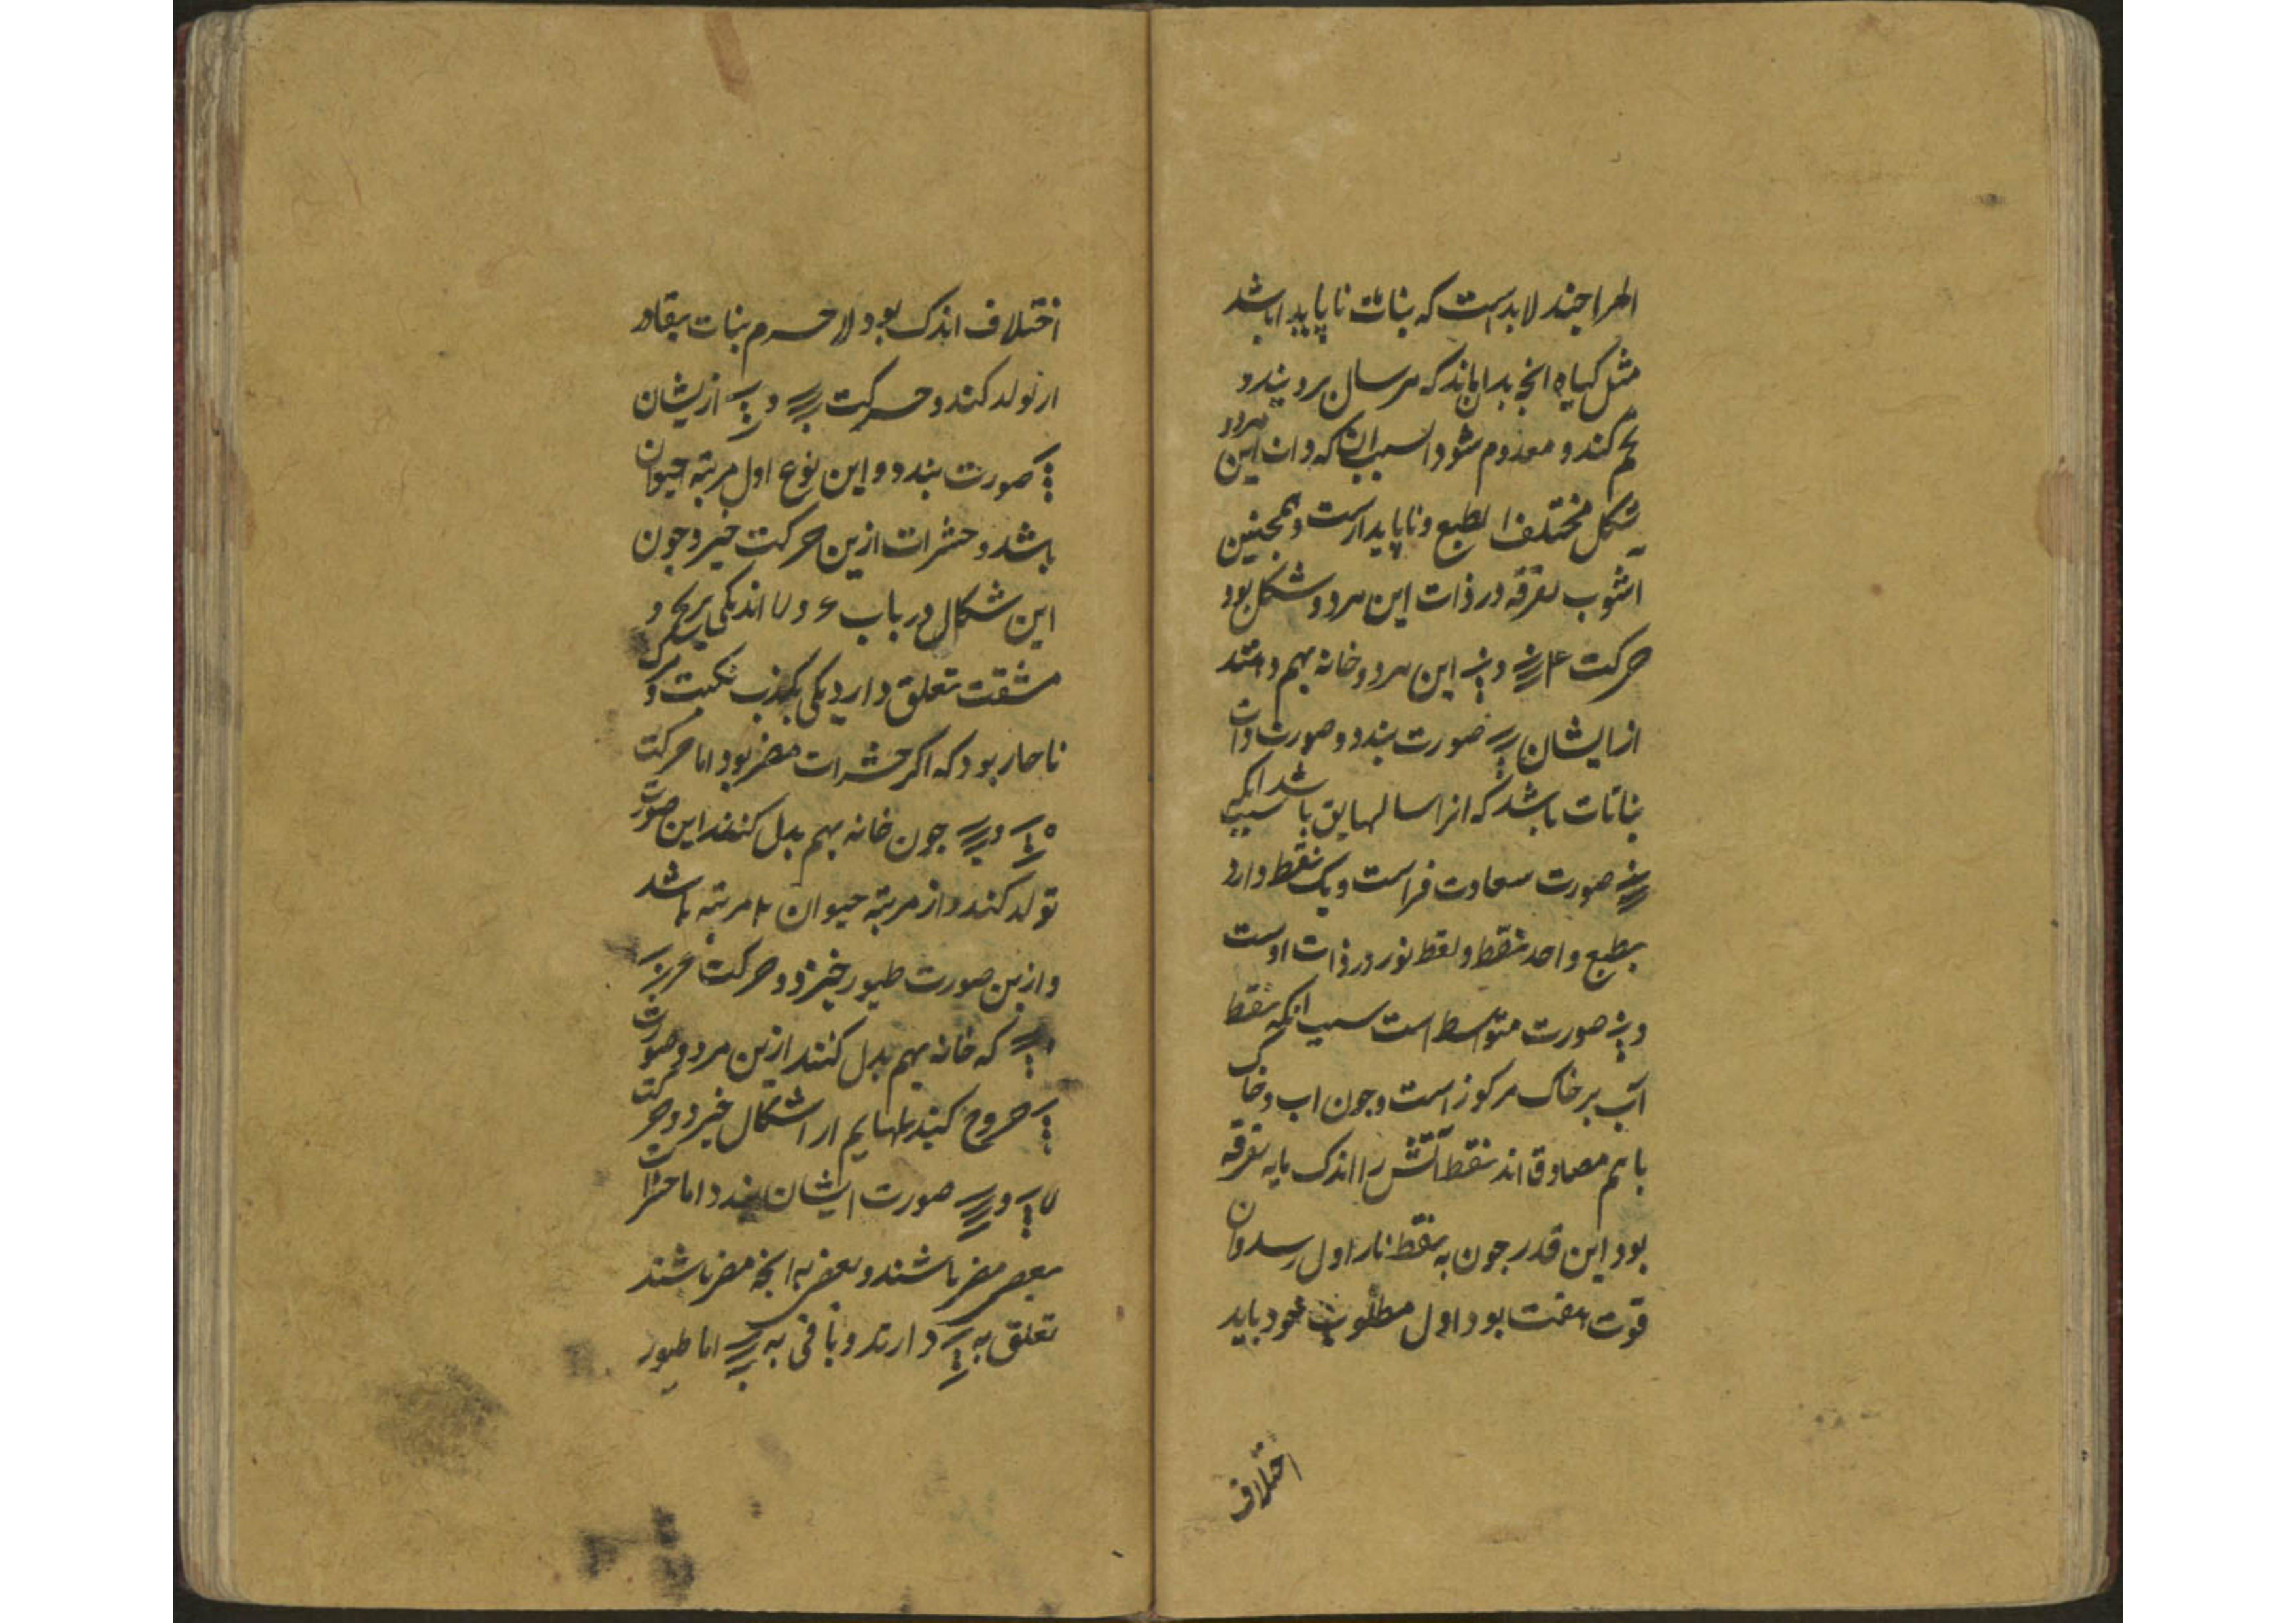 اطراچند لابدست که بنات ناپایدار باشد
مثل کیاه انجدان ماند که هر سال بروید و
تخم کند و معدوم شود بسبب ان که ذات این هردو
شکل مختلف الطبع و ناپایدارست و همچنین
اشوب تفرقه در ذات این هر دو شکل بود
حرکت ۴ و این هر دو خانه بهم دهند
از ایشان صورت بندد و صورت ذات
بناتات باشد که انرا سالها باشد بسبب انکه
صورت سعادت فراست و یک نقط دارد
بطبع واحد نقط و نقط نور در ذات اوست
و صورت متوسط است بسبب انکه نقط
آب بر خاک مرکوز است و جون اب و خاک
با هم مصادق اند نقط آتش را اندک مایه تفرقه
بود این قدر جون به نقط نار اول رسد و ان
قوت هفت بود اول مطلوب خود باید
اختلاف
اختلاف اندک بود لاجرم بنات بقادر
ازو تولد کند و حرکت و از یشان
صورت بندد و این نوع اول مرتبه حیوان
باشد و حشرات ازین حرکت خیزد و جون
این شکال در باب ۶ و ۷ اند یکی برنج و
مشقت تعلق دارد یکی بکذب نکبت و
ناجار بود که اکر حشرات مضر بود اما حرکت
۵ و جون خانه بهم بدل کنند این صورت
تولد کند و از مرتبه حیوان ۲ مرتبه باشد
و ازین صورت طیور خیزد و حرکت ۶
و که خانه بهم بدل کنند ازین هر دو صورت
خروج کند بهایم از اشکال خیزد و حرکت
۷ و صورت ایشان بندد اما حشرات
بعضی مضر باشند و بعضی نه انچه مضر باشند
تعلق به دارند و باقی به اما طیور